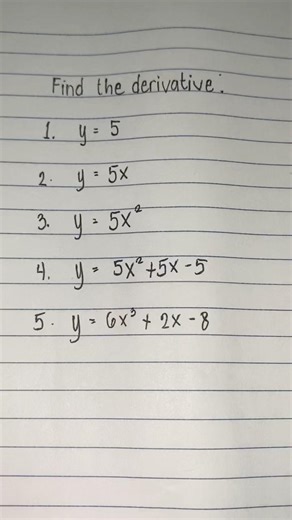 Find the derivative:
1. y = 5
2. y = 5x
3. y = 5x²
4. y = 5x²+5x-5
5. y = 6x³ + 2x - 8